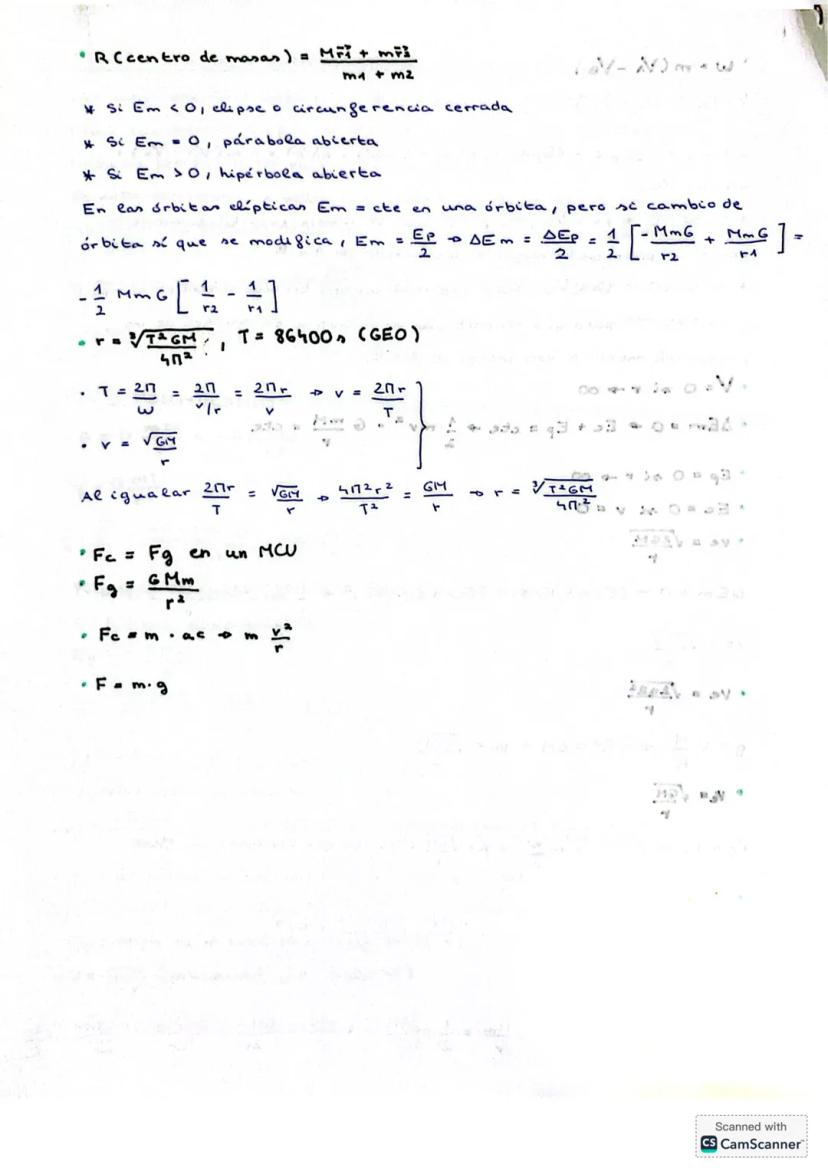 • R (centro de masas) = (M r⃗1 + m r⃗2) / (m1 + m2)
* Si Em < 0, elipse o circungerencia cerrada
* Si Em = 0, párabola abierta
* Si Em > 0, hipérbola abierta
En las órbitas elípticas Em = cte en una órbita, pero si cambio de
órbita sí que se modifica, Em = Ep/2 → ΔEm = ΔEp/2 = 1/2 [-MmG/r2 + MmG/r1] =
-1/2 MmG [1/r2 - 1/r1]
• r = ∛(T²GM)/4π², T = 86400s (GEO)
• T = 2π/ω = 2π/(v/r) = 2πr/v → v = 2πr/T
• v = √GM/r
Al igualar 2πr/T = √GM/r → 4π²r²/T² = GM/r → r = ∛(T²GM)/4π²
• Fc = Fg en un MCU
• Fg = GMm/r²
• Fc = m · ac → m v²/r
• F = m·g
Scanned with
CS CamScanner